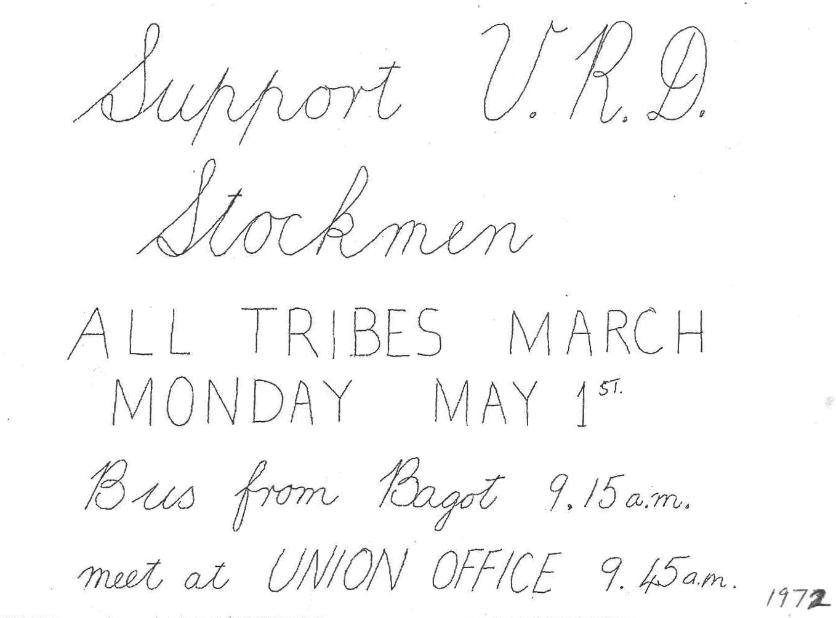 Support V.R.D.
Stockmen
ALL TRIBES MARCH
MONDAY MAY 1ST.
Bus from Bagot 9.15 a.m.
meet at UNION OFFICE 9.45 a.m.
1972